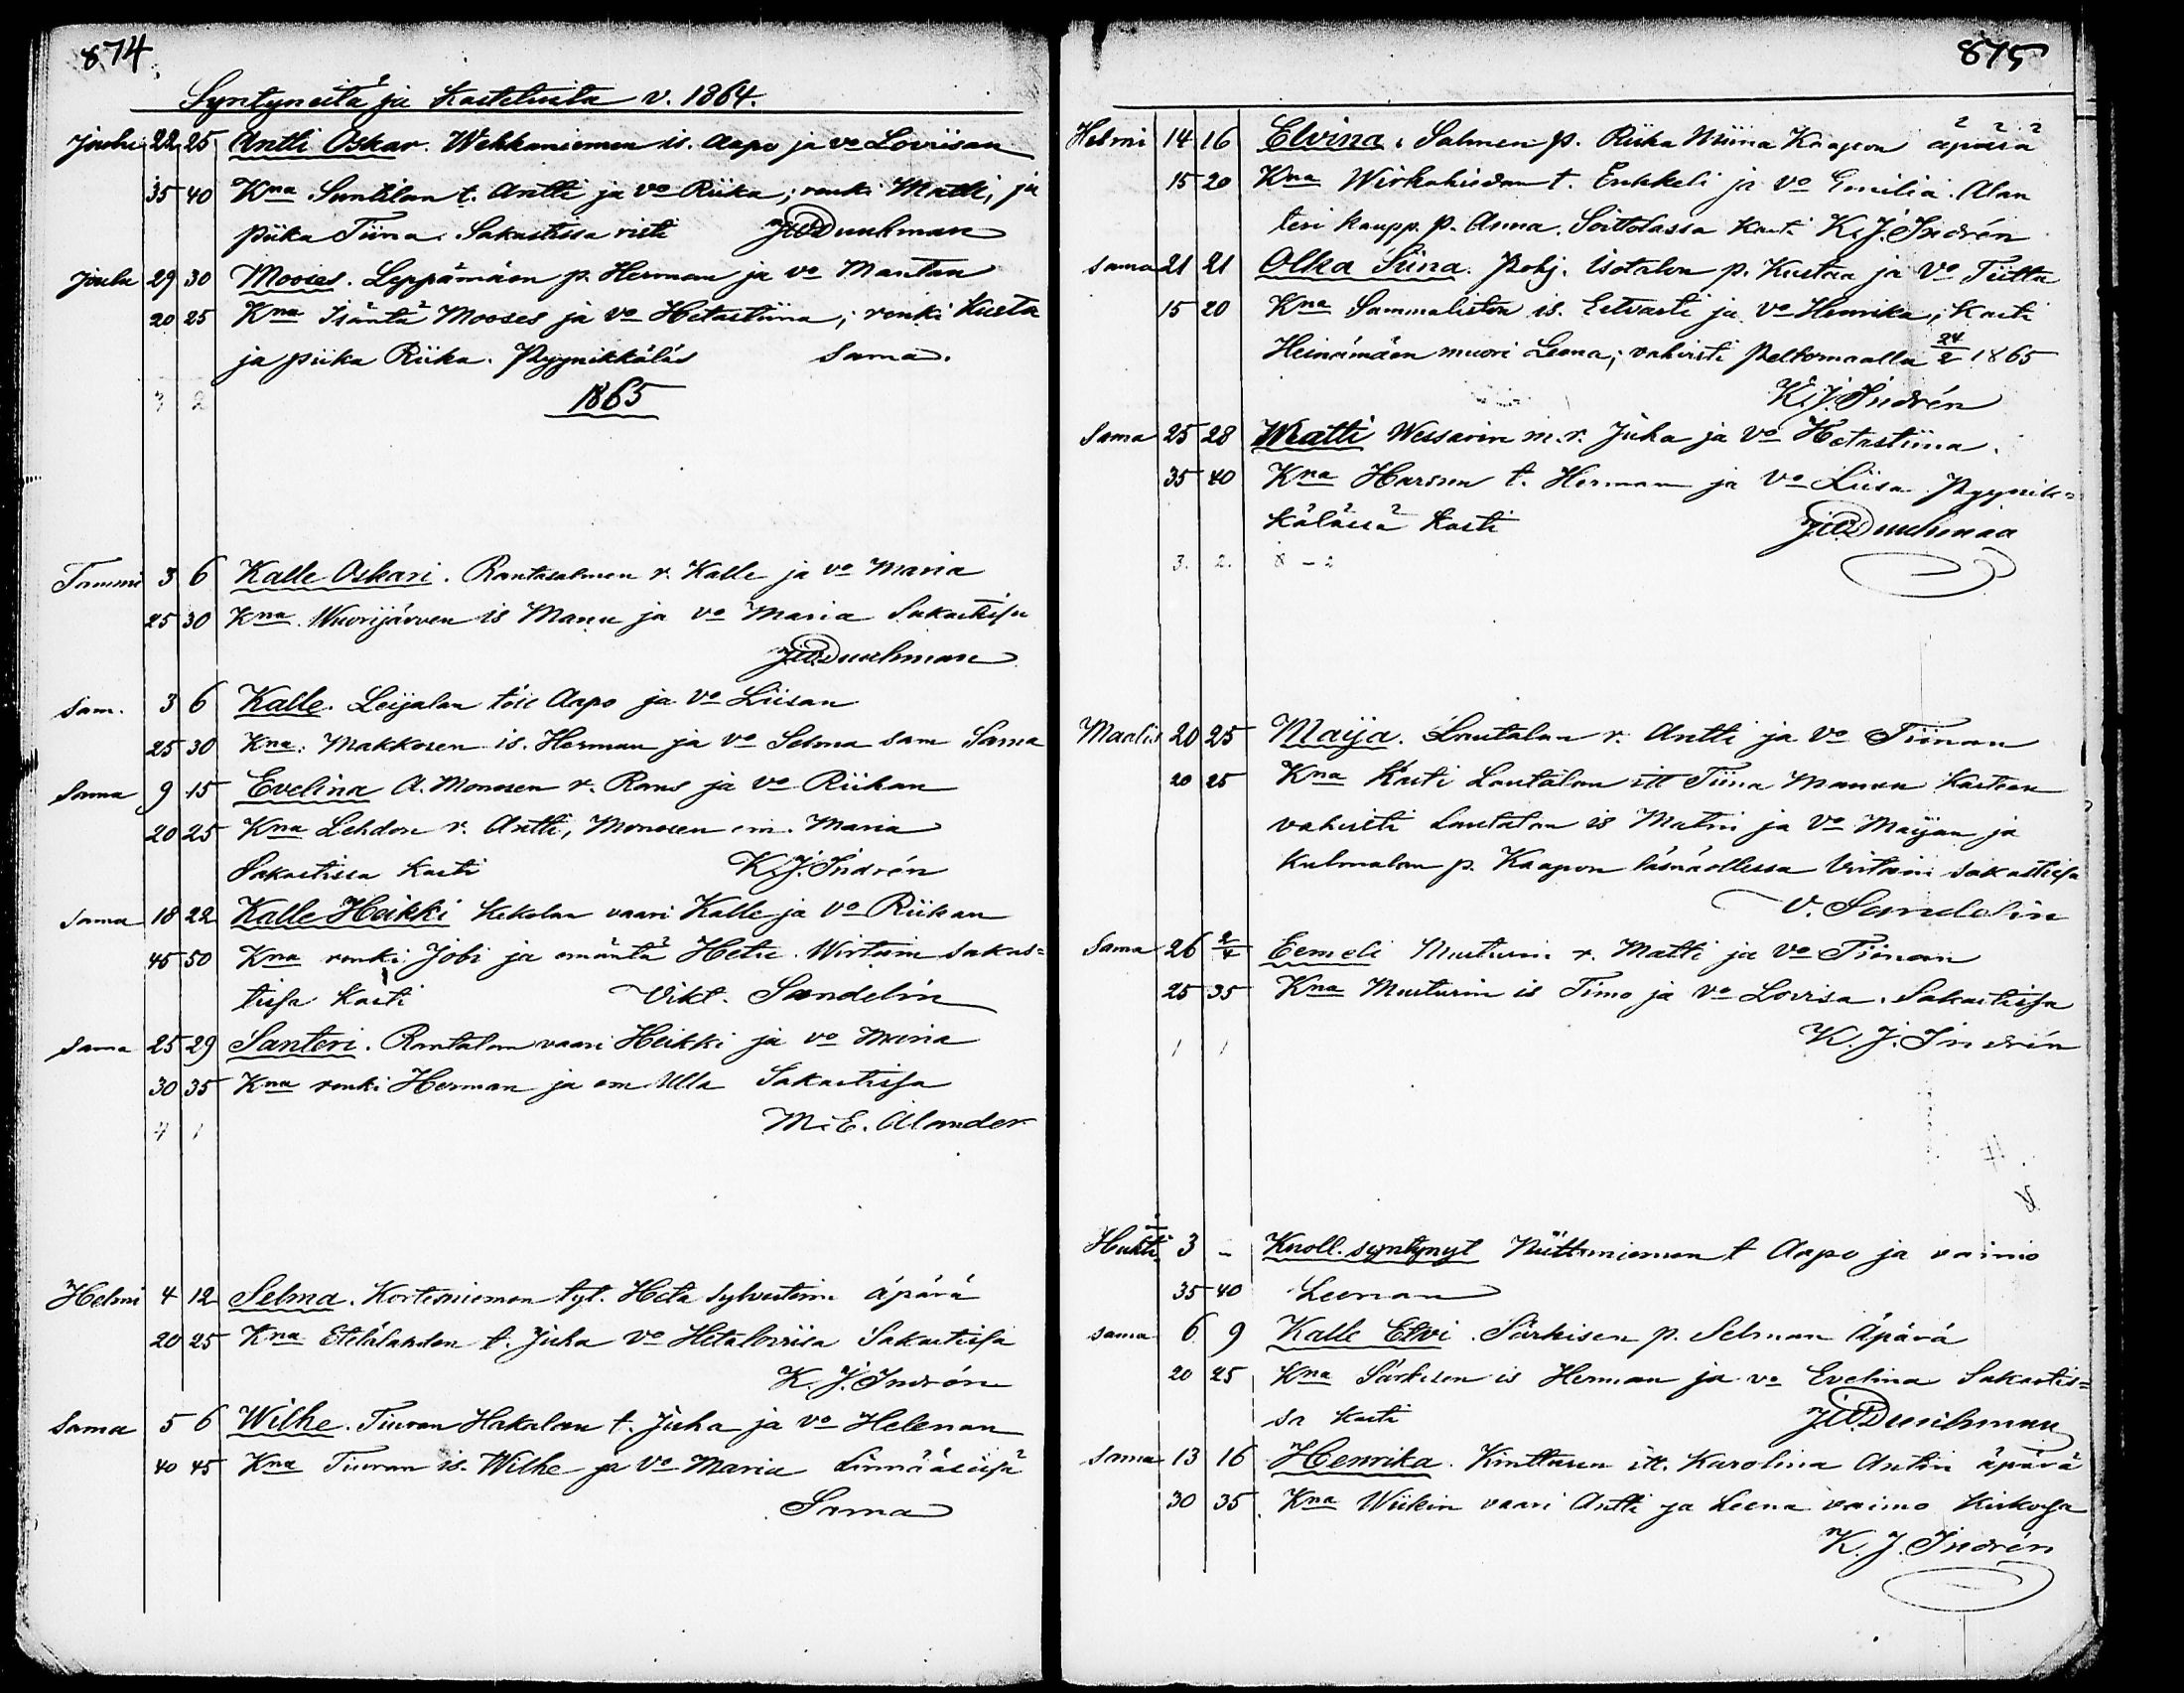 874
Syntyneitä ja kastetuita v. 1864.
Joulu 22 25 Antti Oskar. Wehkaniemen is. Aapo ja vo Loviisan
35 40 Kna Suntilan t. Antti ja vo Riika; renki Matti, ja
piika Tiina. Sakastissa risti JWDuuhman
Joulu 29 30 Mooses. Leppämäen p. Herman ja vo Mantan
20 25 Kna Isäntä Mooses ja vo Hetastiina; renki Kusta
ja piika Riika. Pyynikkäläs Sama.
3 2 1865
Tammi 3 6 Kalle Oskari. Rantasalmen r. Kalle ja vo Maria
25 30 Kna Wuorijärven is Manu ja vo Maria Sakastisa
JWDuuhman
Sam. 3 6 Kalle. Leijalan töll Aapo ja vo Liisan
25 30 Kna: Makkosen is. Herman ja vo Selma sam Sama
Sama 9 15 Evelina A. Monosen r. Rans ja vo Riikan
20 25 Kna Lehdon r. Antti, Monosen em. Maria
Sakastissa kasti K.J. Indrén
Sama 18 22 Kalle Heikki Kekolan vaari Kalle ja vo Riikan
45 50 Kna renki Jobi ja emäntä Heta. Wirtain sakas=
tisa kasti Vikt. Sandelin
Sama 25 29 Santeri. Rantalan vaari Heikki ja vo Maria
30 35 Kna renki Herman ja em Ulla Sakastisa
4 1 M. E. Alander
Helmi 4 12 Selma. Korteniemen tyt. Heta Sylvesterin äpärä
20 25 Kna Etelälahden t. Juha vo Hetaloviisa Sakastisa
K. J. Indrén
Sama 5 6 Wilhe. Tiuran Hakalan t. Juha ja vo Helenan
40 45 Kna Tiuran is. Wilhe ja vo Maria
Sama
875
Helmi 14 16 Elvina. Salmen p. Riika Miina Kaapon äpärä
15 20 Kna Wirkahiedan t. Enkkeli ja vo Emilia. Alan
teri kaupp. p. Anna. Soittolassa kasti K. J. Indrén
sama 21 21 Olka Siina. Pohj. Isotalon p. Kustaa ja vo Tiitta
15 20 Kna Sammaliston is. Eetvarti ja vo Henrika; Kasti
Heinämäen muori Leena; vahvisti Peltomaalla 24/2 1865
K. J. Indrén
Sama 25 28 Matti Wessarin m. r. Juha ja vo Hetastiina.
35 40 Kna Harsun t. Herman ja vo Liisa. Pyynik=
kälässä kasti JWDuuhman
3. 2. 8 - 2
Maalis 20 25 Maija. Lautalan r. Antti ja vo Tiinan
20 25 Kna Kasti Lautalan itt Tiina Manun kasteen
vahvisti Lautalan is Matin ja vo Maijan ja
Kulmalan p. Kaapon läsnäollessa Virtain sakastisa
V. Sandelin
Sama 26 2/4 Eemeli Musturin r. Matti ja vo Tiinan
25 35 Kna Musturin is Timo ja vo Lovisa. Sakastisa
1 1 K. J. Indrén
Huhti 3 - Kuoll. syntynyt Niittyniemen t Aapo ja vaimo
35 40 Leenan
sama 6 9 Kalle Elvi. Särkisen p. Selman Äpärä
20 25 Kna Särkisen is Herman ja vo Evelina Sakastis=
sa kasti JWDuuhman
Sama 13 16 Henrika. Kinttusen itt. Karolina Antin äpärä
30 35 Kna Wiikin vaari Antti ja Leena vaimo Kirkosa
K. J. Indrén